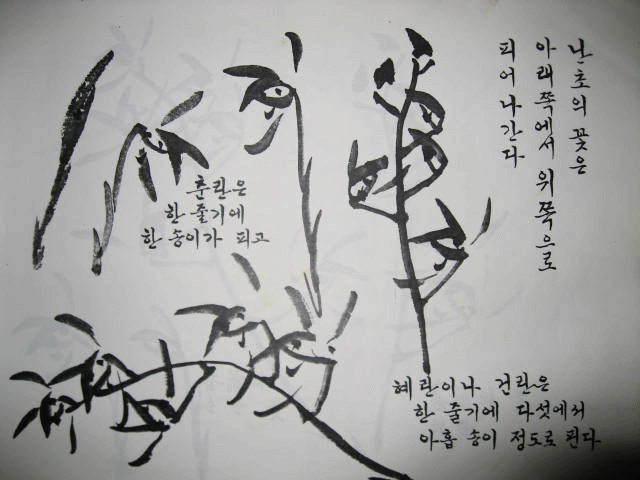 난초의 꽃은
아래쪽에서 위쪽으로
피어나간다
춘란은
한 줄기에
한 송이가 피고
혜란이나 건란은
한 줄기에 다섯에서
아홉 송이 정도로 핀다